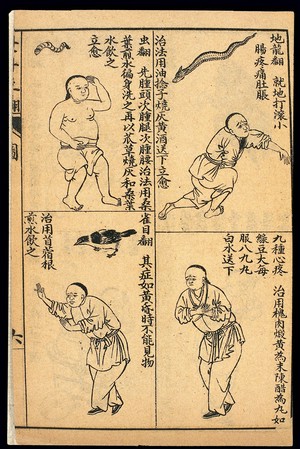 地龍翻 就地打滾小
腸疼痛肚脹
治法用油捻子燒灰黃酒送下立愈
虫翻 先腫頭次腫腿次腫腰治法用桑
葉煎水徧身洗之再以草燒灰和桑葉
水飲之
立愈
九種心疼 治用槐肉煅黃為末陳醋為丸如
菉豆大每
服八九丸
白水送下
雀目翻 其症如黃昏時不能見物
治用苜蓿根
煎水飲之
六